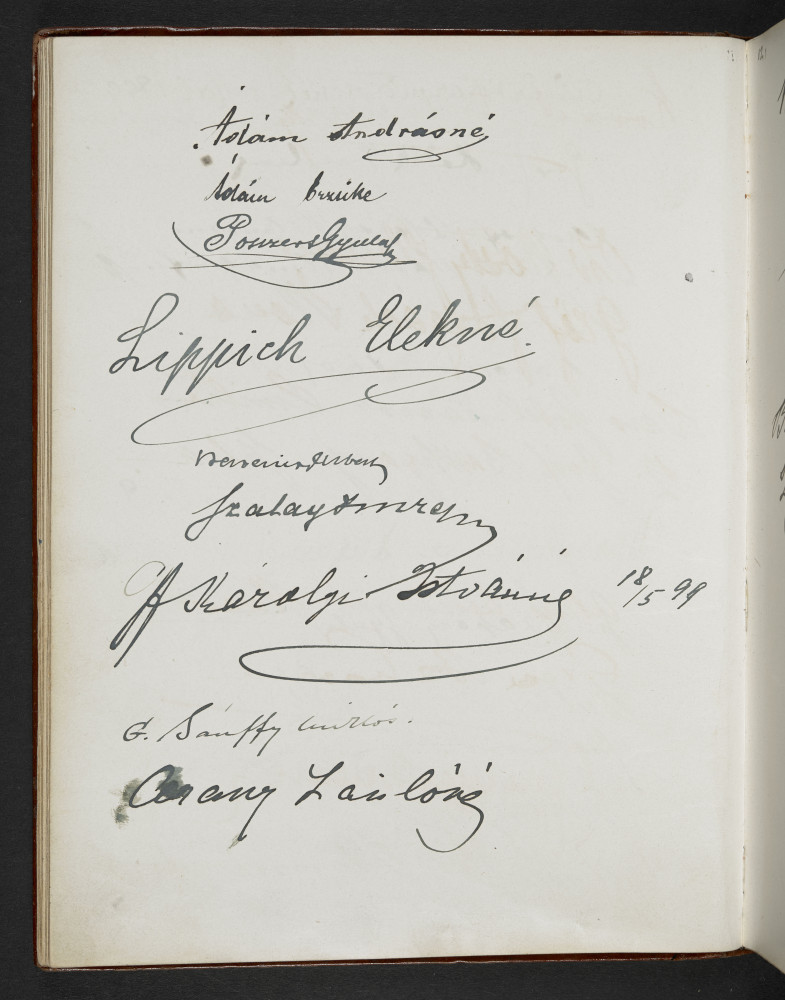 Ádám Andrásné
Ádám Erzsike
Gyula
Lippich Elekné.
Szalay Imre
Gf Károlyi Istvánné 18/5 99
G. Bánffy Miklós.
Arany Lászlóné